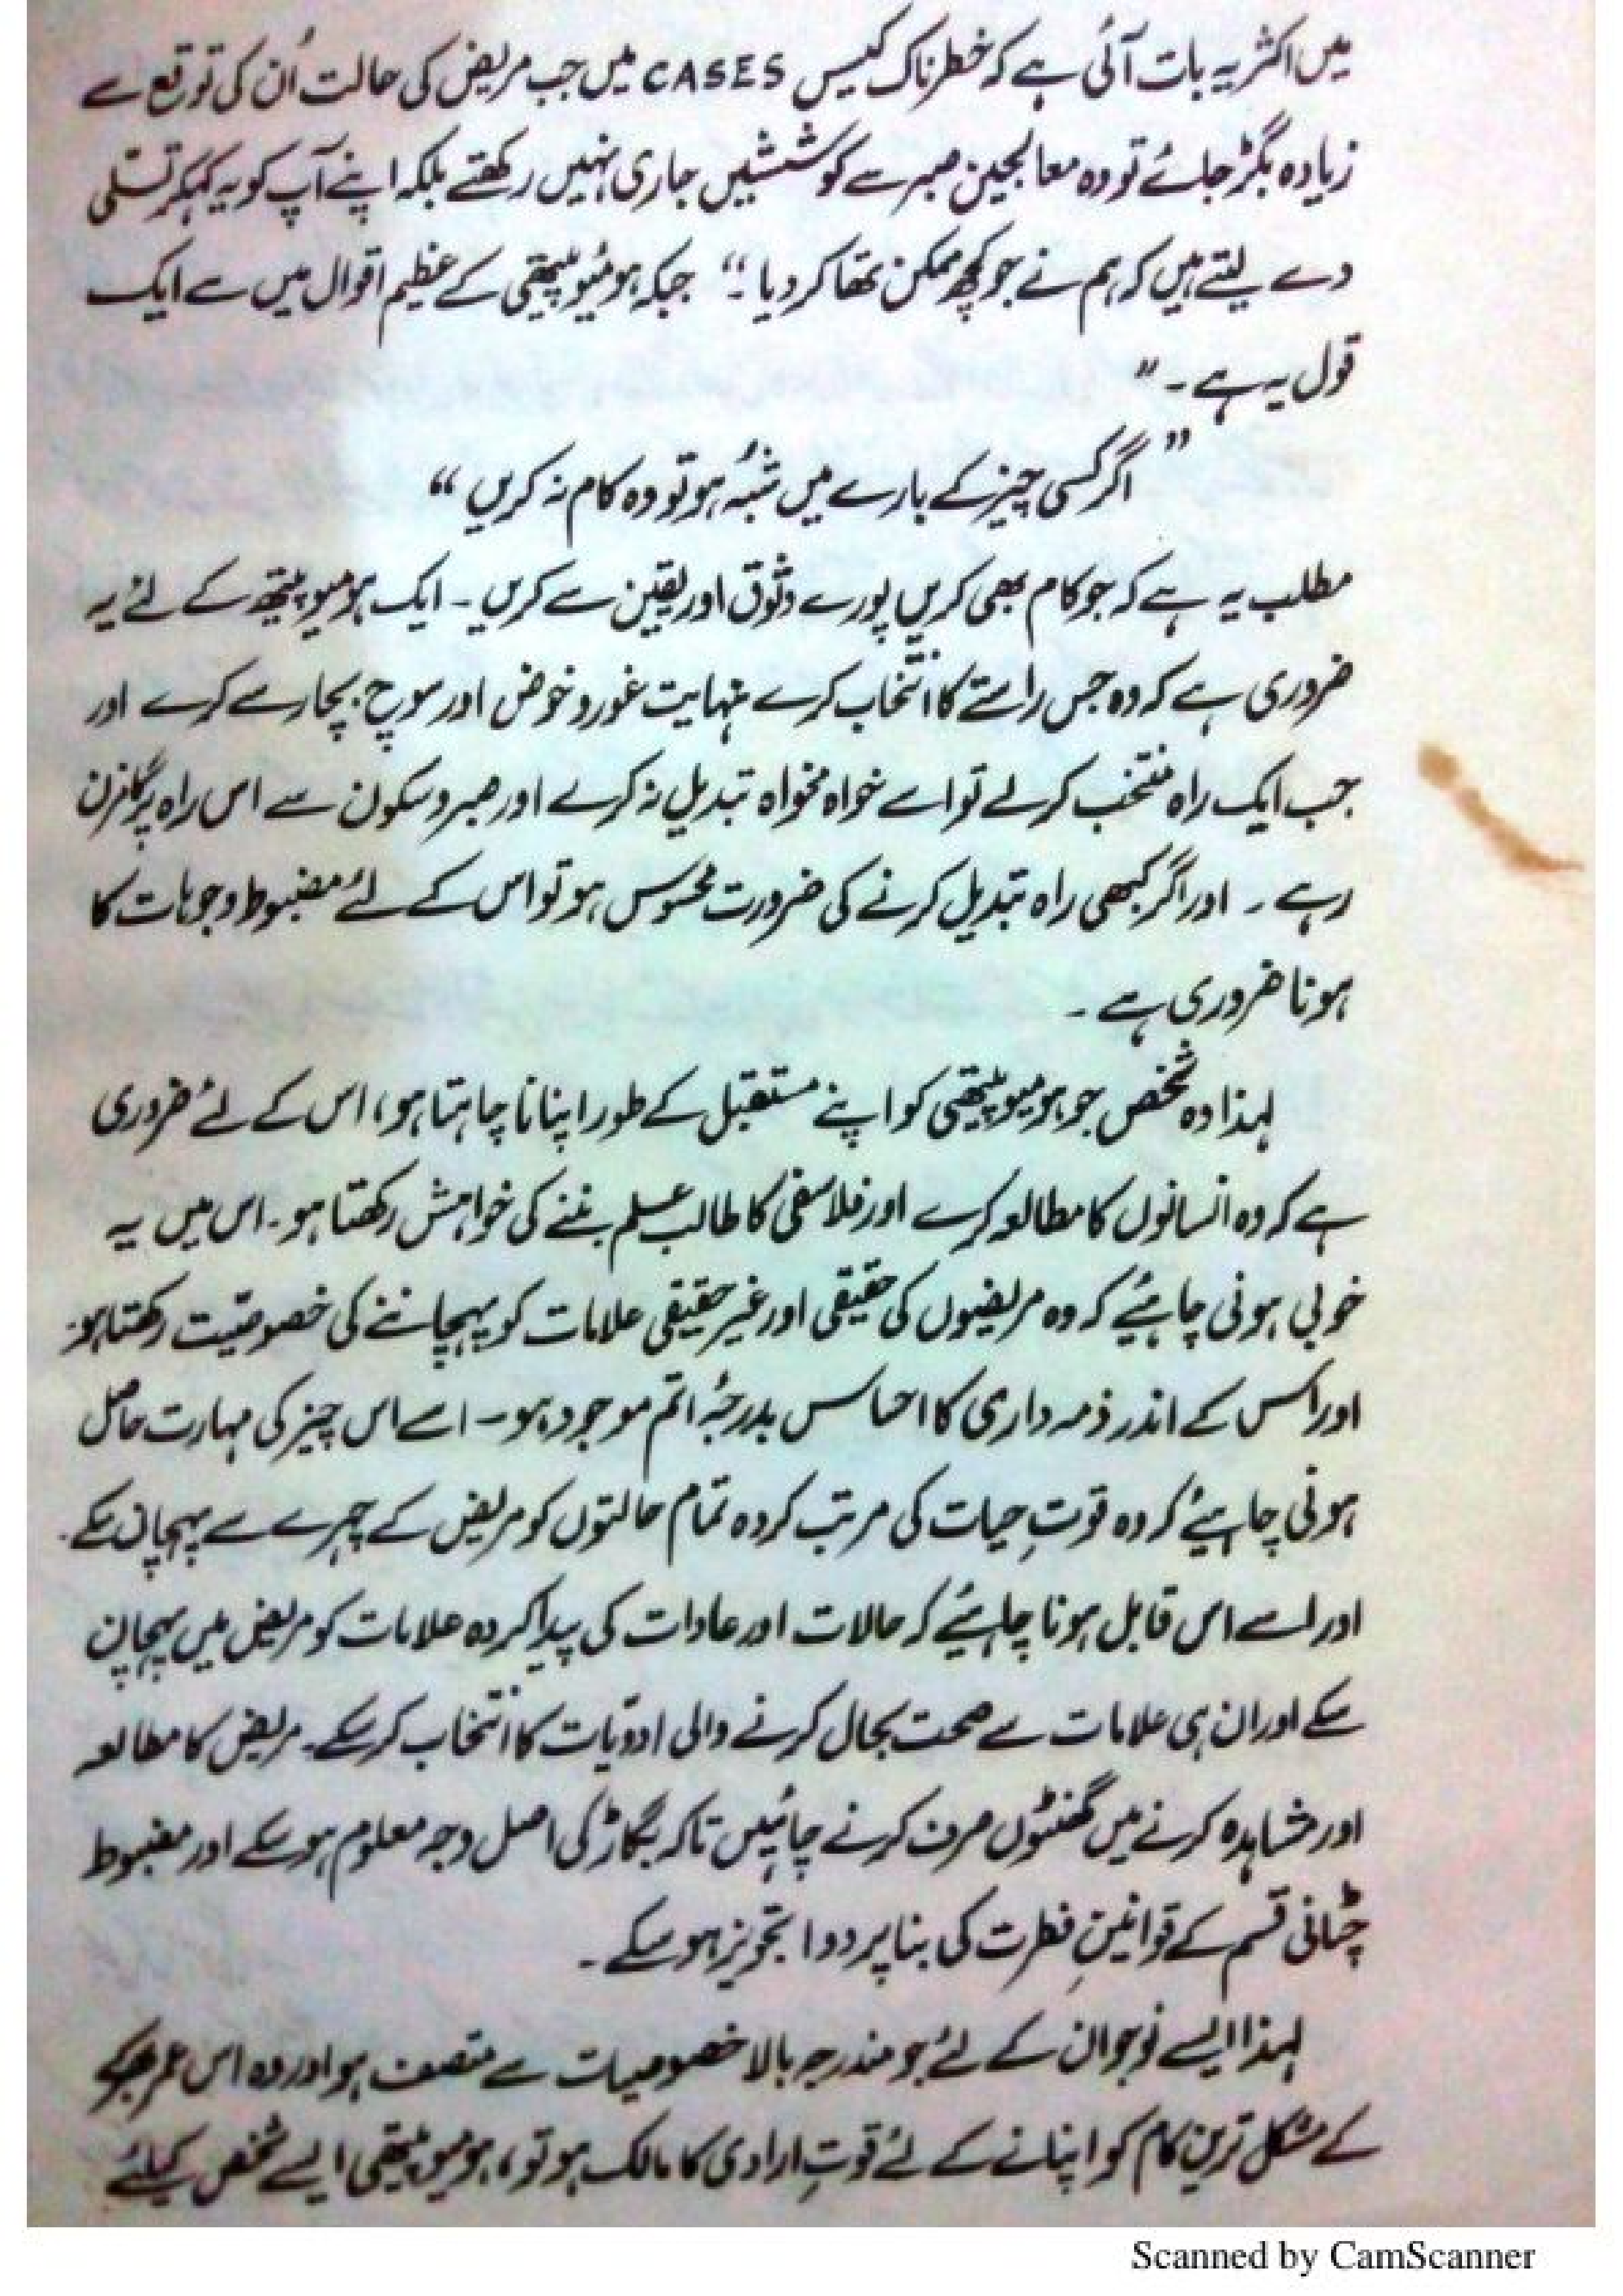 میں اکثر یہ بات آئی ہے کہ خطرناک کیس CASES میں جب مریض کی حالت اُن کی توقع سے
زیادہ بگڑ جائے تو وہ معالجین صبر سے کوششیں جاری نہیں رکھتے بلکہ اپنے آپ کو یہ کہکر تسلی
دے لیتے ہیں کہ ہم نے جو کچھ ممکن تھا کر دیا ۔“ جبکہ ہومیوپیتھی کے عظیم اقوال میں سے ایک
قول یہ ہے ۔ "
” اگر کسی چیز کے بارے میں شبُہ ہو تو وہ کام نہ کریں “
مطلب یہ ہے کہ جو کام بھی کریں پورے وثوق اور یقین سے کریں ۔ ایک ہومیوپیتھ کے لئے یہ
ضروری ہے کہ وہ جس راستے کا انتخاب کرے نہایت غور و خوض اور سوچ بچار سے کرے اور
جب ایک راہ منتخب کر لے تو اسے خواہ مخواہ تبدیل نہ کرے اور صبر و سکون سے اس راہ پر گامزن
رہے ۔ اور اگر کبھی راہ تبدیل کرنے کی ضرورت محسوس ہو تو اس کے لئے مضبوط وجوہات کا
ہونا ضروری ہے ۔
لہذا وہ شخص جو ہومیوپیتھی کو اپنے مستقبل کے طور اپنانا چاہتا ہو، اس کے لئے ضروری
ہے کہ وہ انسانوں کا مطالعہ کرے اور فلاسفی کا طالب علم بننے کی خواہش رکھتا ہو ۔ اس میں یہ
خوبی ہونی چاہئیے کہ وہ مریضوں کی حقیقی اور غیر حقیقی علامات کو پہچاننے کی خصوصیت رکھتا ہو ۔
اور اس کے اندر ذمہ داری کا احساس بدرجۂ اتم موجود ہو ۔ اسے اس چیز کی مہارت حاصل
ہونی چاہئیے کہ وہ قوتِ حیات کی مرتب کردہ تمام حالتوں کو مریض کے چہرے سے پہچان سکے ۔
اور اسے اس قابل ہونا چاہئیے کہ حالات اور عادات کی پیدا کردہ علامات کو مریض میں پہچان
سکے اور ان ہی علامات سے صحت بحال کرنے والی ادویات کا انتخاب کر سکے ۔ مریض کا مطالعہ
اور مشاہدہ کرنے میں گھنٹوں صرف کرنے چاہئیں تاکہ بگاڑ کی اصل وجہ معلوم ہو سکے اور مضبوط
چٹانی قسم کے قوانینِ فطرت کی بنا پر دوا تجویز ہو سکے ۔
لہذا ایسے نوجوان کے لئے جو مندرجہ بالا خصوصیات سے متصف ہو اور وہ اس عمر بھر کے
کے مشکل ترین کام کو اپنانے کے لئے قوتِ ارادی کا مالک ہو تو، ہومیوپیتھی ایسے شخص کیلئے
Scanned by CamScanner